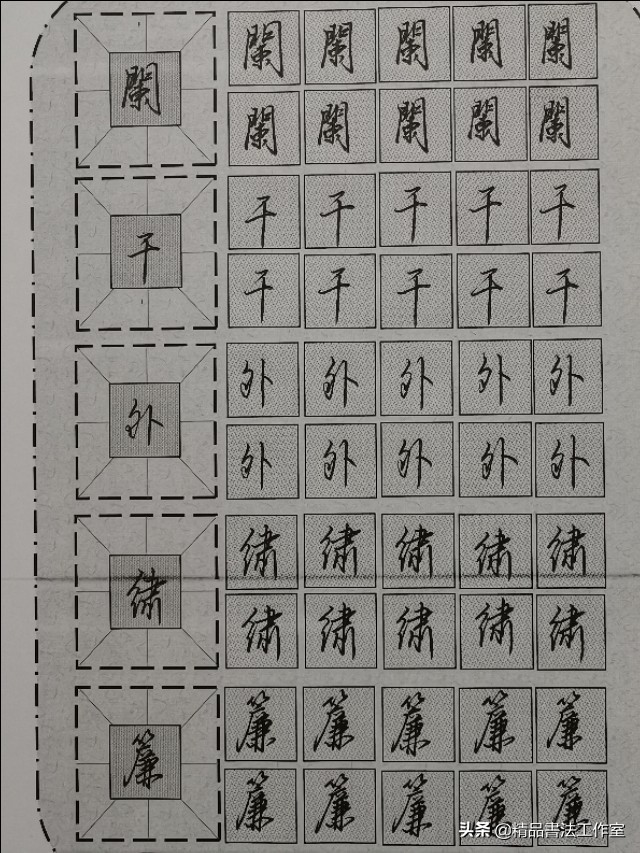 闌
闌 闌 闌 闌 闌
闌 闌 闌 闌 闌
干
干 干 干 干 干
干 干 干 干 干
外
外 外 外 外 外
外 外 外 外 外
繡
繡 繡 繡 繡 繡
繡 繡 繡 繡 繡
簾
簾 簾 簾 簾 簾
簾 簾 簾 簾 簾
头条 @精品書法工作室